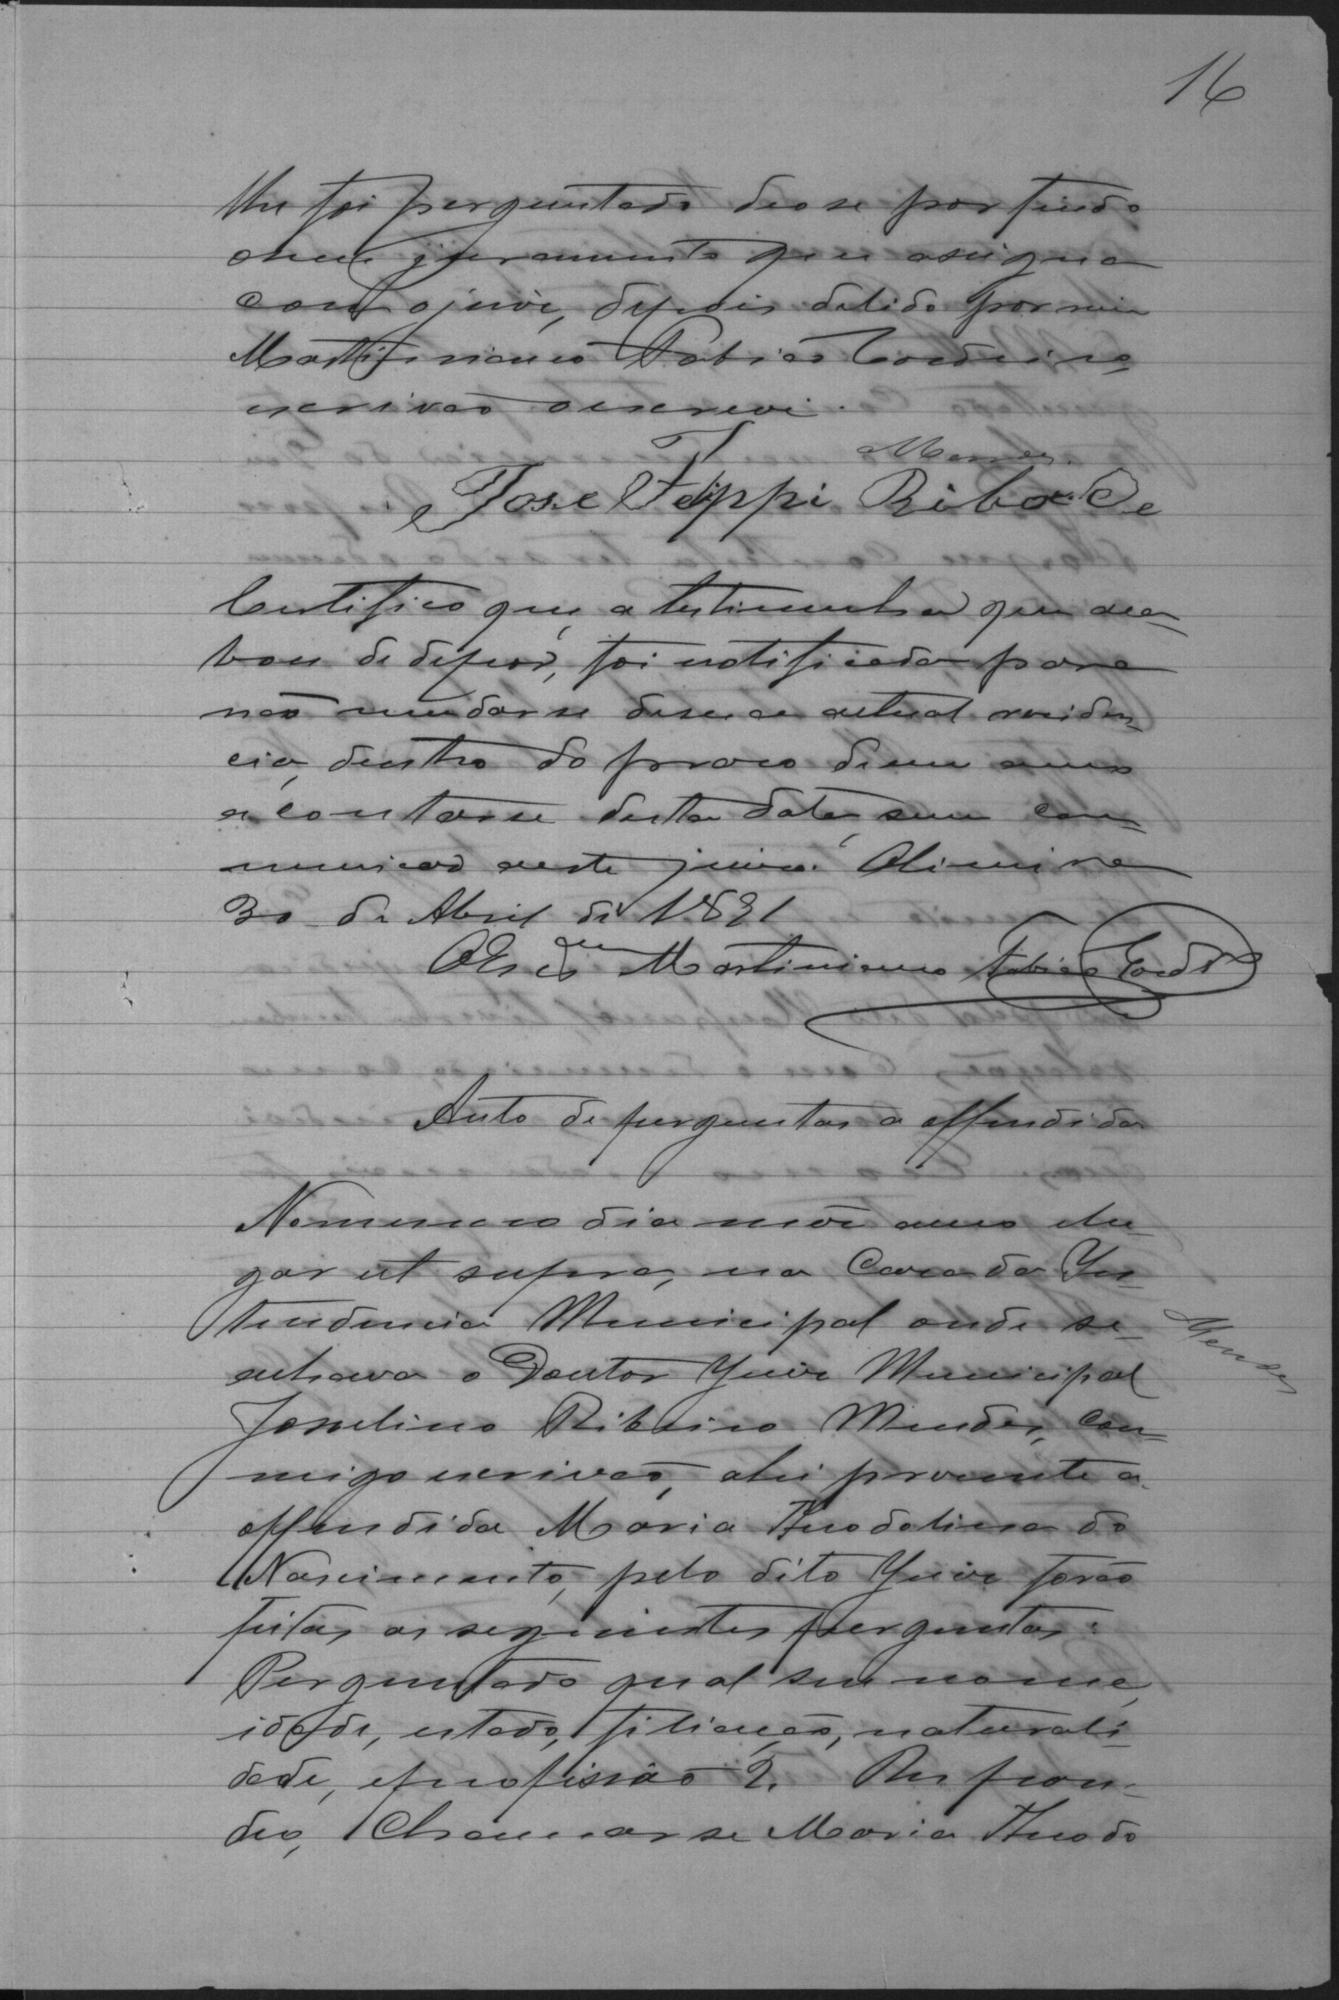 16
lhe foi perguntado deo se por findo
o seu juramento que assigna
com o juiz, depois de lido por mim
Martiniano Tobias Cordeiro,
escrivão o escrevi.
Mendes
José Felippi Ribo de
Certifico que, a testimunha que aca-
bou de depor, foi notificada para
não mudar se de sua actual residen-
cia, dentro do praso de um anno
a contar se desta data, sem com-
municar a este juiso.
30 de Abril de 1891
O Escrivão Martiniano Tobias Cord.ro
Auto de perguntas a offendida
No mesmo dia mês anno e lu-
gar ut supra, na Casa da In-
tendencia Municipal onde se
Mendes
achava o Doutor Juiz Municipal
Joselino Ribeiro Mendes, com-
migo escrivão, ahi presente a
offendida Maria Theodolina do
Nascimento, pelo dito Juiz forão
feitas as seguintes perguntas:
Perguntado qual seu nome,
idade, estado, filiação, naturali-
dade, e profissão? Respon-
deo, Chamar se Maria Theodo